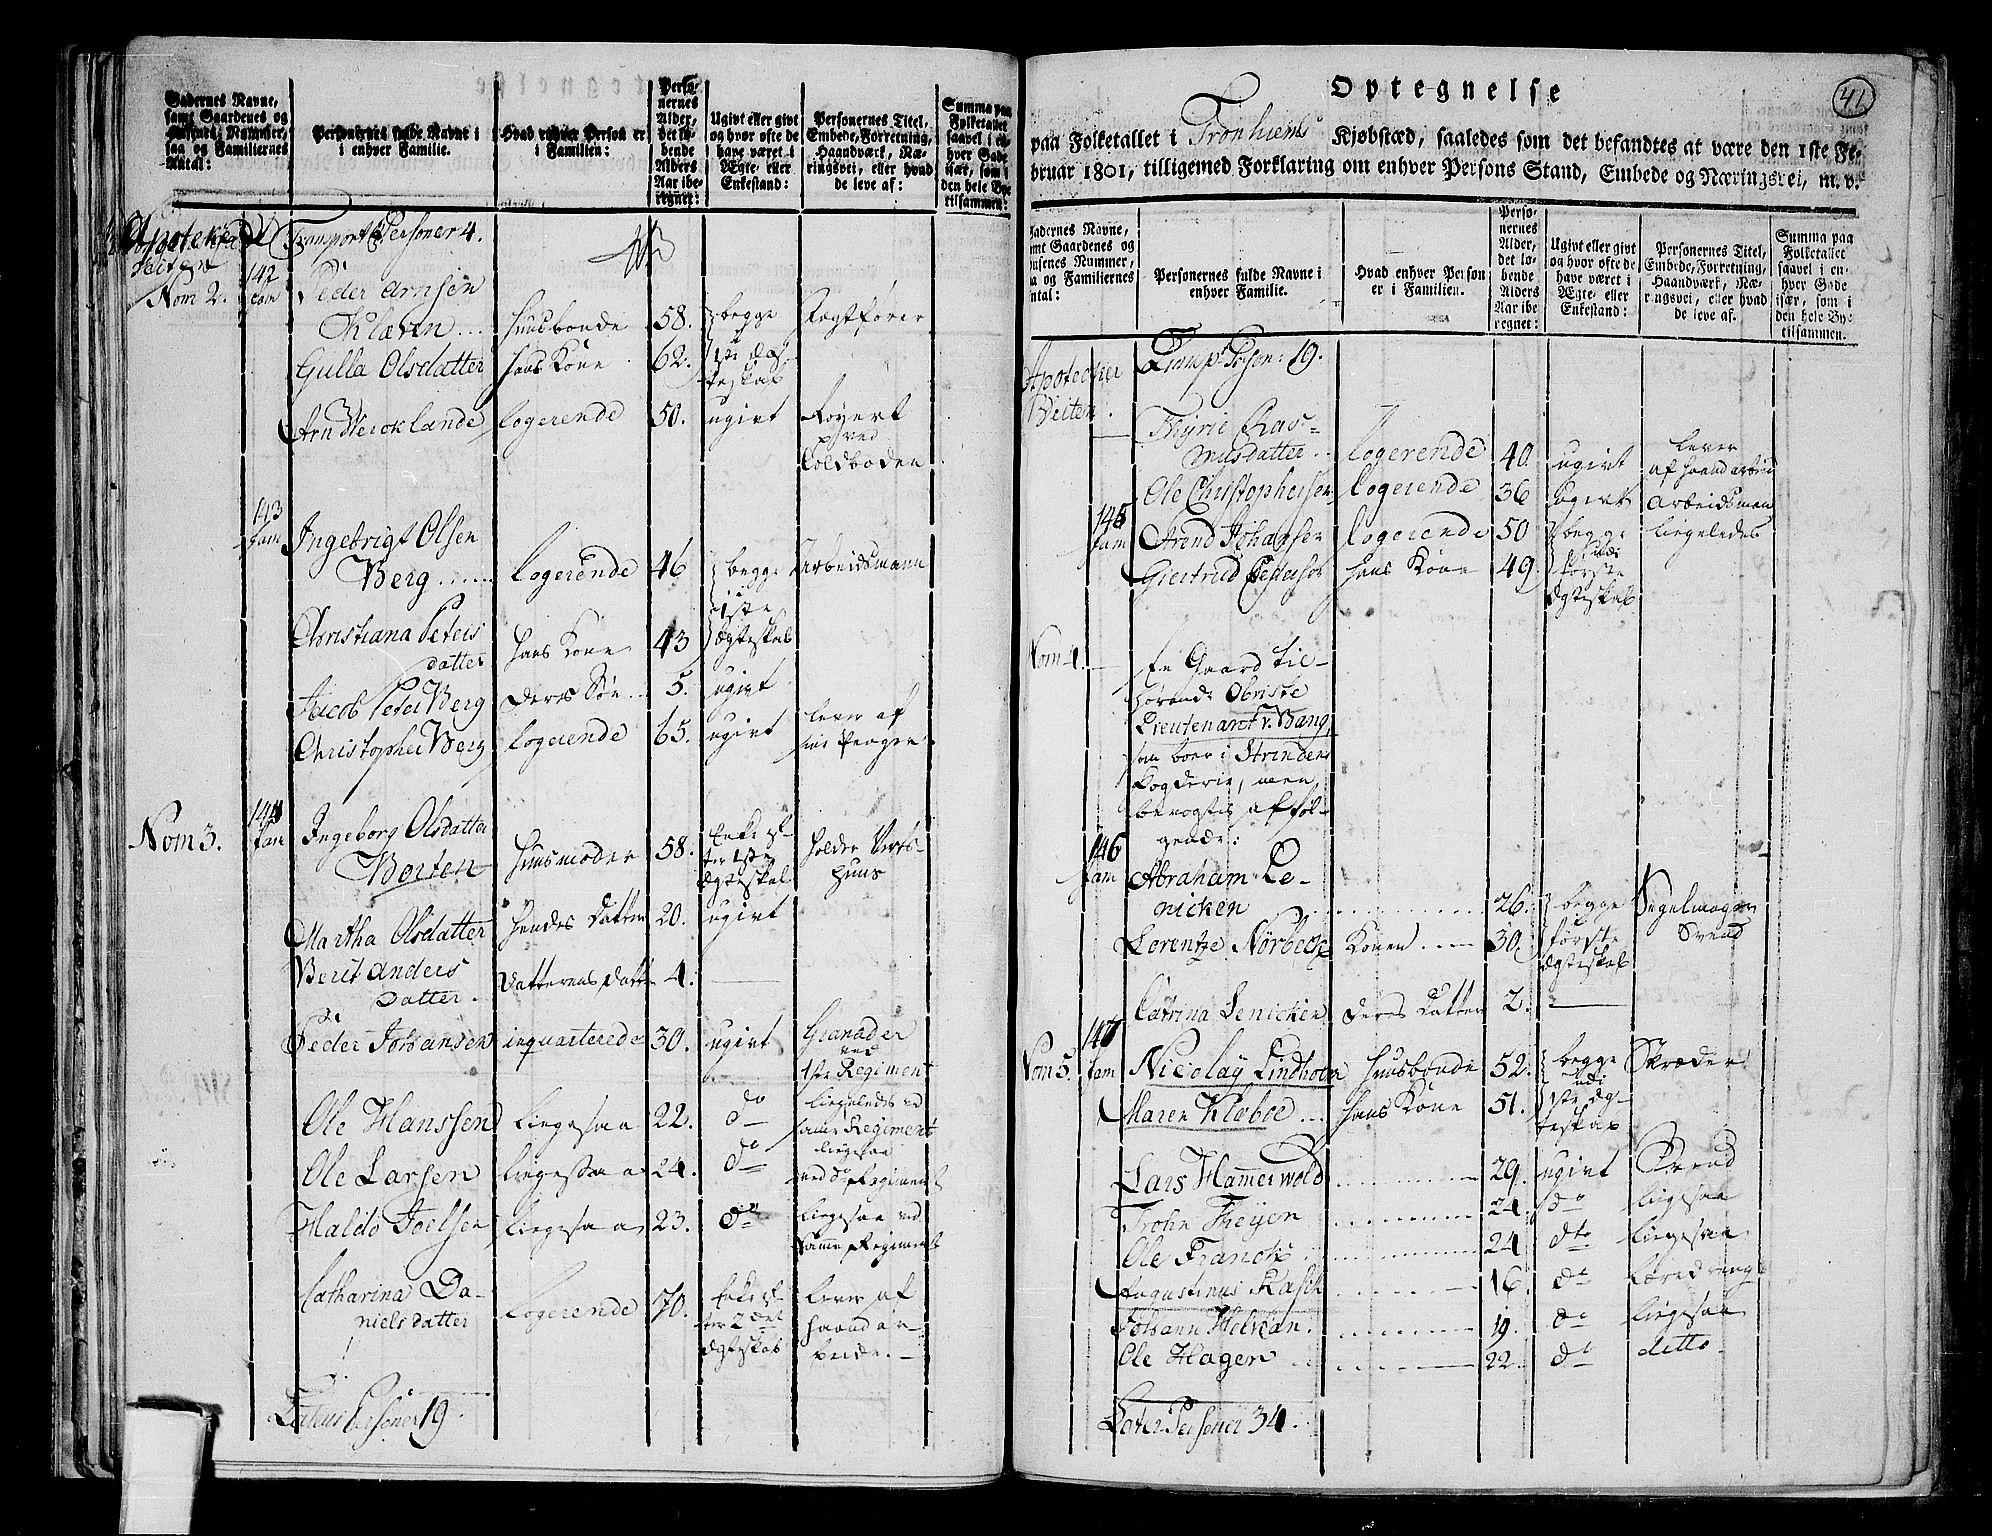 Gadernes Navne,
samt Gaardenes og
Husenes Nummer,
saa og Familiernes
Antal:
Personernes fulde Navne i
enhver Familie.
Hvad enhver Person er
i Familien:
Perso-
nernes
Alder,
det lø-
bende
Alders
Aar ibe-
regnet:
Ugivt eller givt
og hvor ofte de
have været i
Ægte- eller
Enkestand:
Personernes Titel,
Embede, Forretning,
Haandværk, Næ-
ringsvei, eller hvad
de leve af:
Summa paa
Folketallet
saavel i en-
hver Gade
især, som i
den hele By
tilsammen:
Transport Personer 4.
Nom 2. 142 fam Peder Arnsen
Klæven ... Huusbonde 58. begge Fægtfører
Gulla Olsdatter hans Kone 62. 1ste Æg-
teskab
Arn Weroklande logerende 50. ugivt Røyert
ved
Toldboden
143
fam Ingebrigt Olsen
Berg ...... logerende 46 begge Arbeidsmann
1ste
Christiana Peters hans Kone 43 Ægteskab
datter
Jacob Peter Berg deres Søn .. 5. ugivt
Christopher Berg logerende 65. ugivt lever af
sine Penger
Nom 3. 144 fam Ingeborg Olsdatter
Borten Huusmoder 58. Enke ef-
ter 1ste
Ægteskab holder Verts-
huus
Martha Olsdatter hendes Datter 20. ugivt
Berit Anders
datter. Datterens Datter 4. —
Peder Johansen inquarterede 30. ugivt Granader
ved
1ste Regiment
Ole Hanssen Ligesaa 22. do ligeledes ved
samme Regiment
Ole Larsen Ligesaa 24. do ligesaa
ved do Regiment
Haldo Joelsen Ligesaa 23. do ligesaa ved
Samme Regiment
Catharina Da-
niels datter logerende 70. Enke ef-
ter 2det
Ægteskab lever af
haand ar-
beide. —
Latus Personer 19.
41
Optegnelse
paa Folketallet i Tronhiems Kjøbstæd, saaledes som det befandtes at være den 1ste Fe-
bruar 1801, tilligemed Forklaring om enhver Persons Stand, Embede og Næringsvei, m. v.
Gadernes Navne,
samt Gaardenes og
Husenes Nummer,
saa og Familiernes
Antal:
Personernes fulde Navne i
enhver Familie.
Hvad enhver Person
er i Familien.
Perso-
nernes
Alder,
det lø-
bende
Alders
Aar ibe-
regnet:
Ugivt eller givt
og hvor ofte de
have været i
Ægte- eller
Enkestand:
Personernes Titel,
Embede, Forretning,
Haandværk, Næ-
ringsvei, eller hvad
de leve af.
Summa paa
Folketallet
saavel i en-
hver Gade
især, som i
den hele By
tilsammen.
Apotecker
Veiten.
Transp. Person: 19.
Thyrie Ras-
musdatter .. logerende 40. ugivt lever
af haand arbeid
Ole Christophersen logerende 36 ugivt Arbeidsman
145
fam Arend Johansen logerende 50 begge ligeledes
Giertrud Pedersd hans Kone 49 udi
første
Ægteskab
Nom 4. — En Gaard til-
hørende Obriste
Lieutenant v. Bang,
som boer i Strindens
Fogderie, men
beboes af føl-
gende:
146
fam Abraham Le-
nicken 26. begge Segelmager
Svend
Lorentze Nørbeck Konen 30. første
Ægteskab
Catrina Lenicken deres Datter 2. —
147
Nom 5. fam Nicolay Lindholm Huusbonde 52. begge Skræder
Maren Klæboe ... hans Kone 51. udi
1ste Æg-
teskab
Lars Hamerwold 29. ugivt Svend
Trohn Theyen 24. do ligesaa
Ole Franck 24 dto ligesaa
Augustinus Rasch 16. do Læredreng
Johann Helkan. 19. do ligesaa
Ole Hagen 22. do ditto
Later Personer 34.